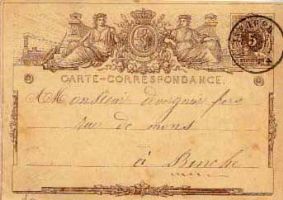 5
CARTE-CORRESPONDANCE.
A Monsieur
rue de mons
à Binche